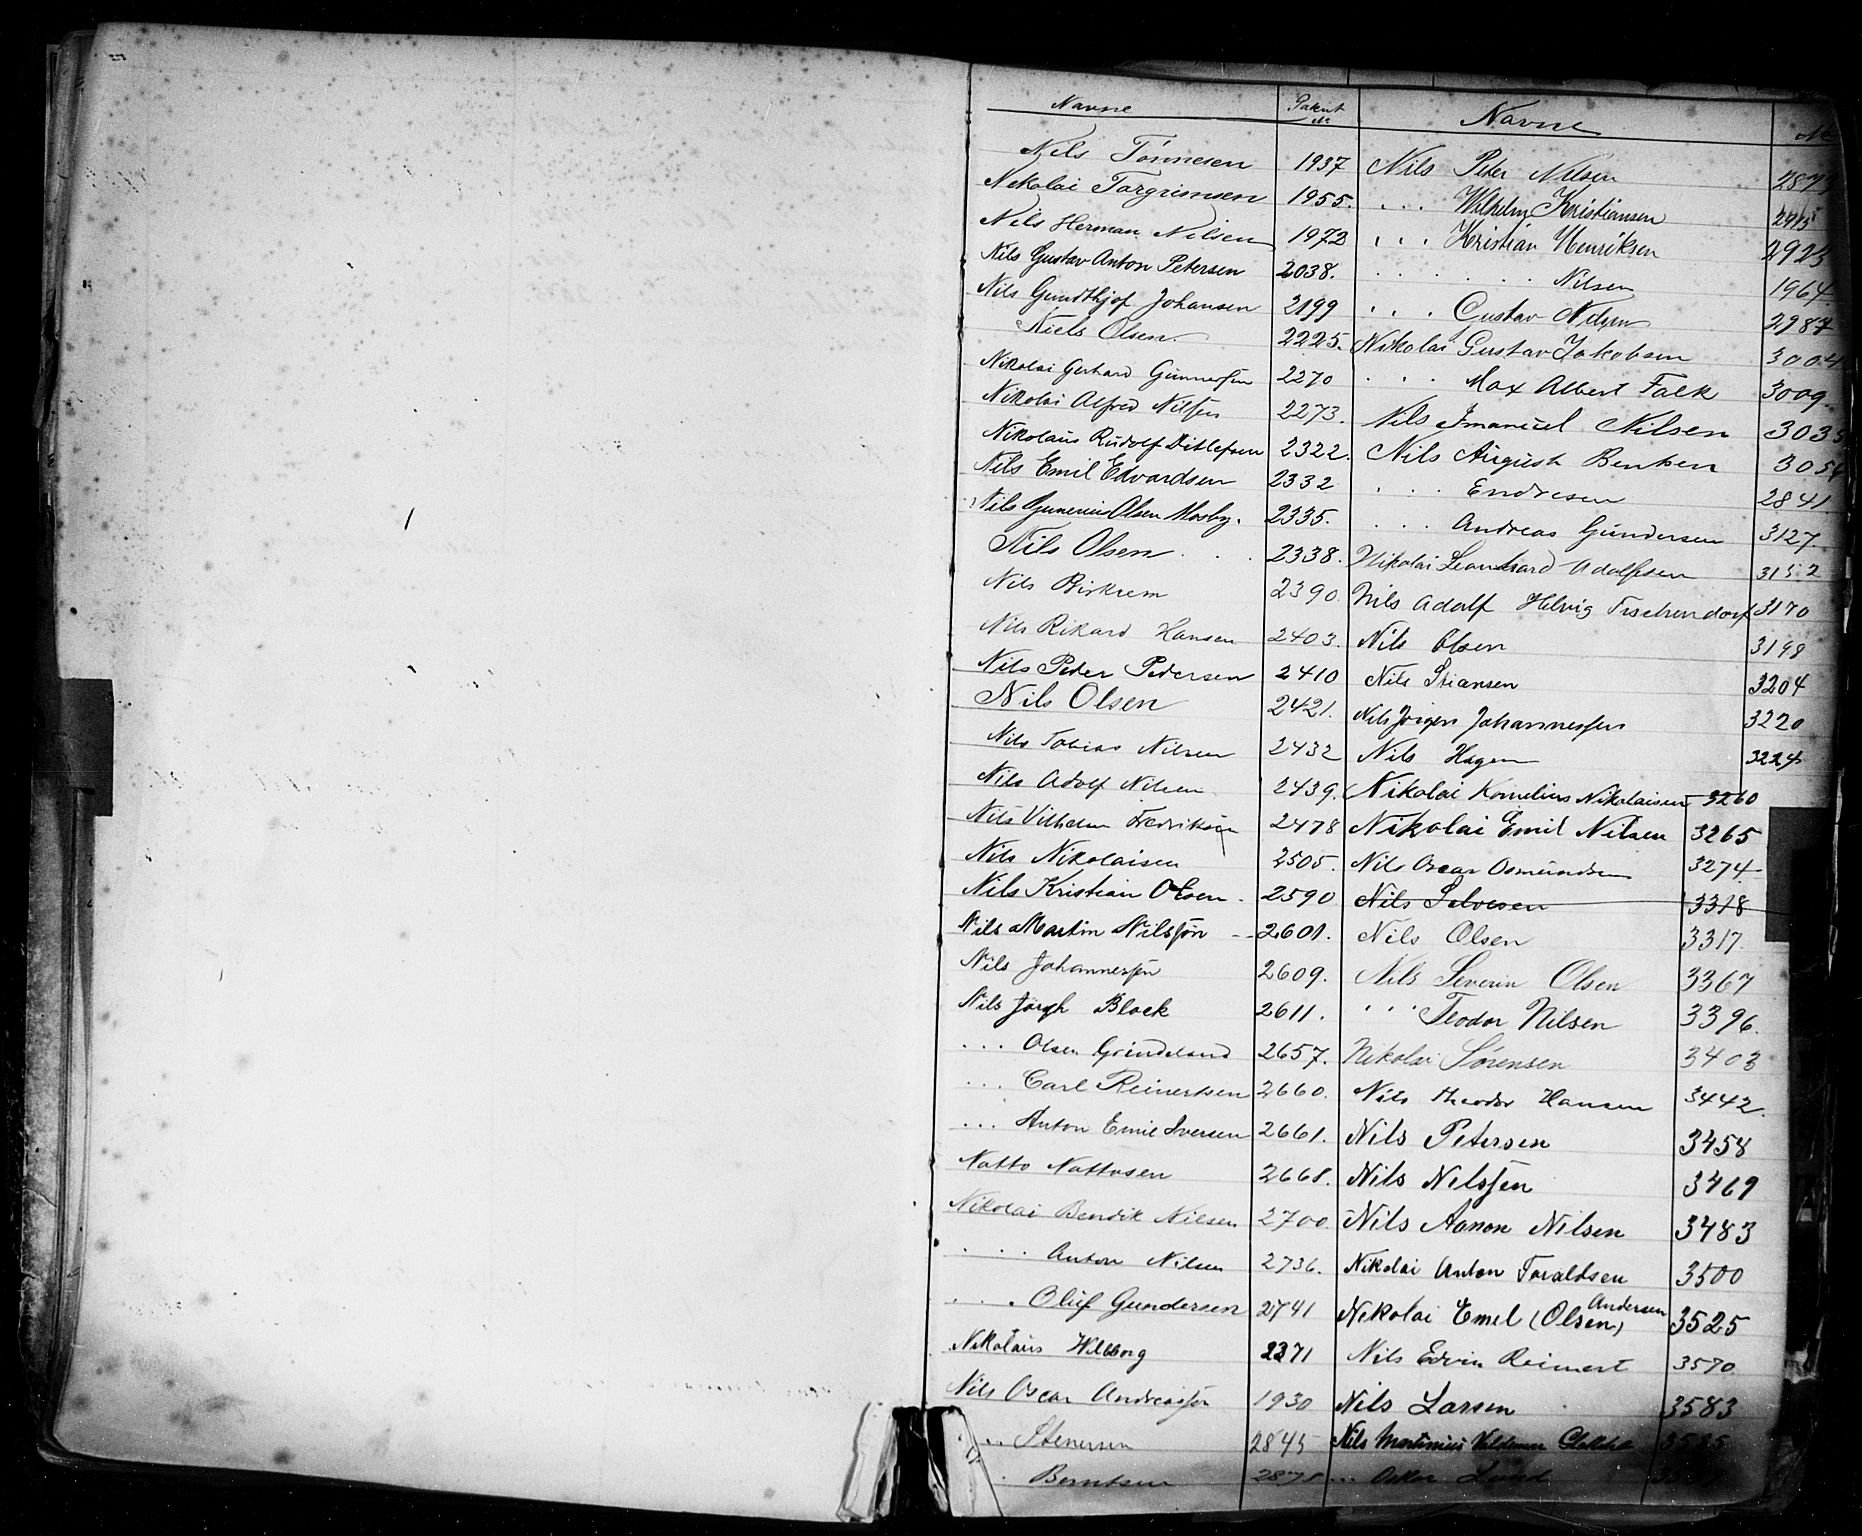 Navne Patent No
Nils Tönnesen 1937
Nikolai Torgrimsen 1955.
Nils Herman Nilsen 1972
Nils Gustav Anton Petersen 2038.
Nils Gundthjof Johansen 2199
Niels Olsen. 2225.
Nikolai Gerhard Gunnersen 2270
Nikolai Alfred Nilsen 2273.
Nikolaus Rudolf Ditlefsen 2322.
Nils Emil Edvardsen 2332
Nils Gunerius Olsen Mosby. 2335.
Nils Olsen . . . 2338.
Nils Birkrem 2390.
Nils Rikard Hansen 2403.
Nils Peder Pedersen 2410
Nils Olsen 2421.
Nils Tobias Nilsen 2432
Nils Adolf Nilsen 2439.
Nils Vilhelm Fredriksen 2478
Nils Nikolaisen 2505.
Nils Kristian Olsen . 2590
Nils Martin Nilssøn -- 2601.
Nils Johannessen 2609.
Nils Jörgh Block 2611.
. . . Olsen Grindeland 2657.
. . . Carl Reinertsen 2660.
. . . Anton Emil Iversen 2661.
Natto Nattosen 2668.
Nikolai Bendik Nilsen 2700.
. . . . Anton Nilsen 2736.
. . . Oluf Gundersen 2741
Nikolaus Willborg 2371
Nils Oscar Andreassen 1930
. . . Stenersen 2845
. . Berntsen 2875
Navne No
Nils Peter Nilsen
. . . Wilhelm Kristiansen 2915
. . . Kristian Henriksen 2923
. . . . . Nilsen 1964
. . . Gustav Nilsen 2987
Nikolai Gustav Jakobsen 3004
. . . Max Albert Falk 3009.
Nils Imanuel Nilsen 3035
Nils August Bentsen 3054
. . . Endresen 2841
. . . Andreas Gundersen 3127.
Nikolai Leonhard Adolfsen 3152
Nils Adolf Helvig Tischendorf 3170
Nils Olsen 3198
Nils Stiansen 3204
Nils Jörgen Johannessen 3220
Nils Hagen 3224
Nikolai Kornelius Nikolaisen 3260
Nikolai Emil Nilsen 3265
Nils Oscar Osmundsen 3274
Nils Salvesen 3318
Nils Olsen 3317.
Nils Severin Olsen 3367
" " Teodor Nilsen 3396.
Nikolai Sørensen 3403
Nils Theodor Hansen 3442.
Nils Petersen 3458
Nils Nilssen 3469
Nils Aanon Nilsen 3483
Nikolai Anton Taraldsen 3500
Andersen
Nikolai Emil (Olsen) 3525
Nils Edvin Reimert 3570
Nils Larsen 3583
Nils Martinius Valdemar 3585
... Oskar Lund